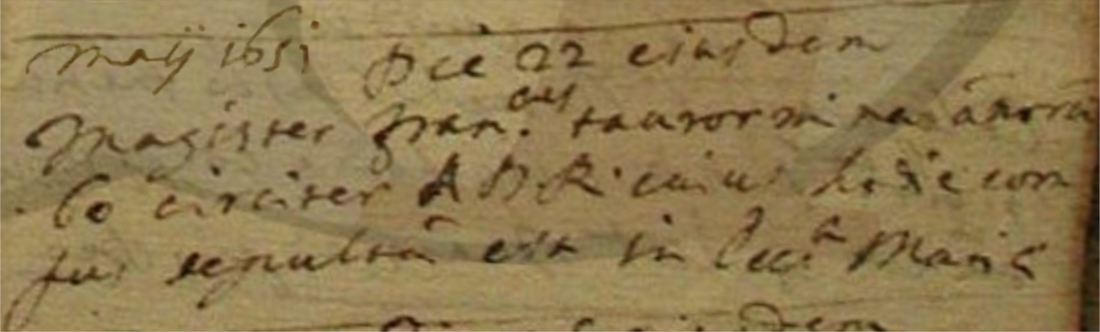 Maij 1651 Die 22 eiusdem
Magister Fran.cus taurormina añorũ
60 circiter A D R cuius hodie cor
pus sepultũ est in Eccl.a Maria